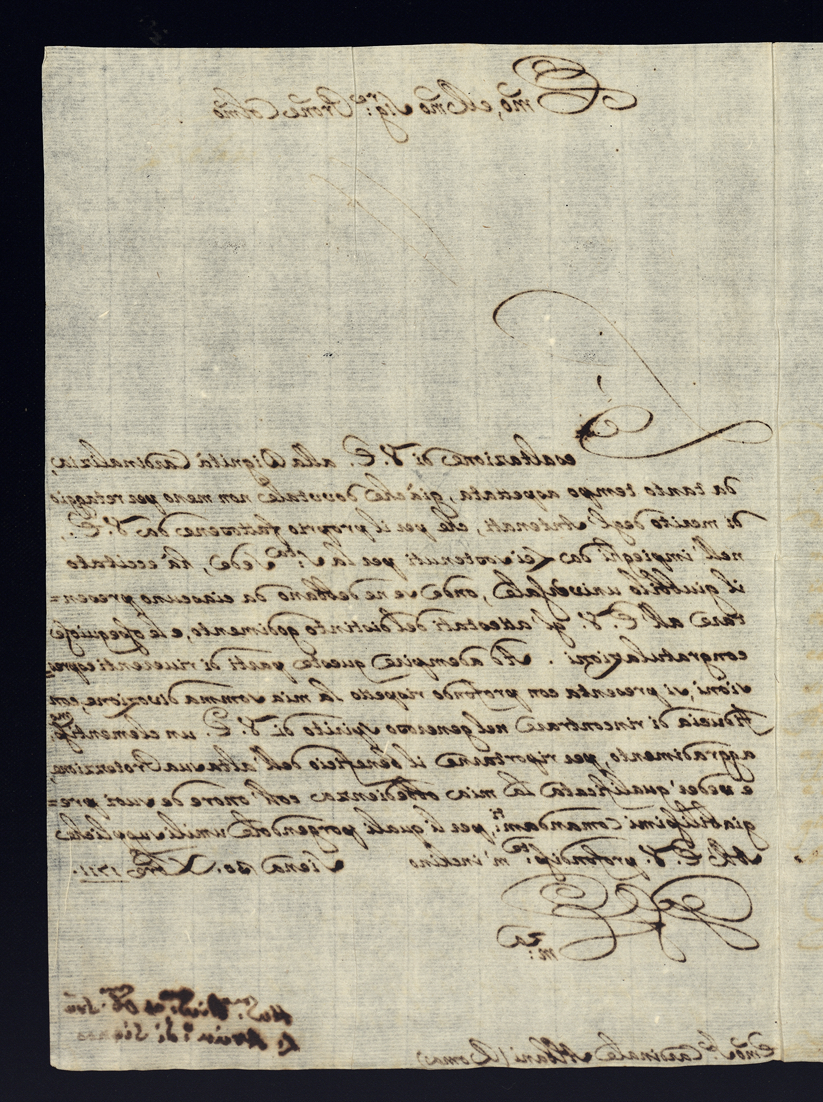 Emo, e Rmo Sig.re Pron Colmo
L'esaltazione di V. E. alla Dignità Cardinalizia,
da tanto tempo aspettata, già che dovutale non meno per retaggio
di merito degl'Antenati, che per il proprio fattosene da V. E.,
nell'impieghi da Lei sostenuti per la S.ta Sede, hà eccitato
il giubbilo universale, onde se ne debbano da ciascuno presen=
tare all'E. V. gl'attestati del distinto godimento, e le ossequiose
congratulazioni. Ad adempire queste parti di riverenti espres
sioni, si presenta con profondo rispetto la mia somma divozione, con
fiducia di rincontrare nel generoso spirito di V. E. un clementis.mo
aggradimento, per riportarne il beneficio dell'alta sua Protezzione,
e veder' qualificata la mia obbedienza coll'onore de suoi pre=
giabilissimi comandam.ti, per li quali porgendole umili suppliche
All'E. V. profondiss.te m'inchino Siena 30. Xbre 1711.
Di V. E.za
Um.mo Dev.mo et Ob. Ser.
L'Arciv.o di Siena
Emo S.r Cardinale Albani (Roma)